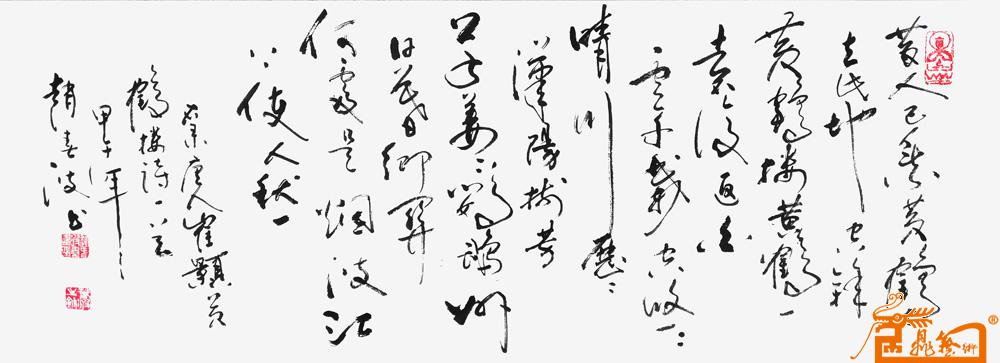 昔人已乘黄鶴
去此地空餘
黄鶴樓黄鶴一
去不復返白
雲千載空悠々
晴川歷々
漢陽樹芳
草萋々鸚鵡洲
日暮鄉關
何處是烟波江
上使人愁
录唐人崔顥黄
鶴樓詩一首
甲午年
趙春波书